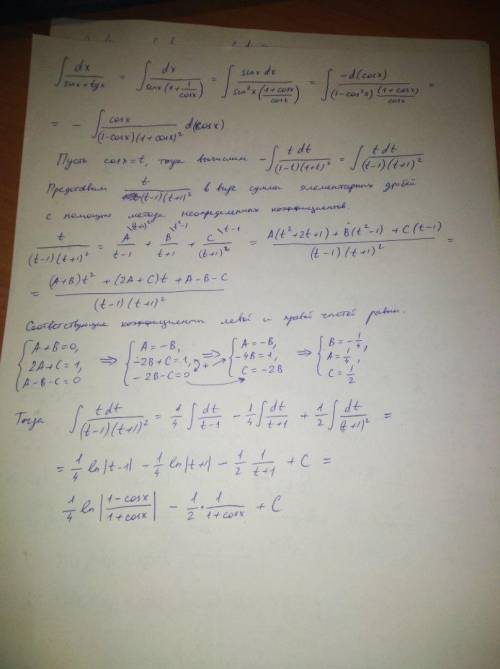 ∫ dx/(sinx + tgx) = ∫ dx/(sinx(1 + 1/cosx)) = ∫ sinx dx/(sin²x((1+cosx)/cosx)) = ∫ -d(cosx)/((1-cos²x)(1+cosx)/cosx) =
= - ∫ cosx/((1-cosx)(1+cosx)²) d(cosx)
Пусть cosx=t, тогда вычислим -∫ t dt/((1-t)(1+t)²) = ∫ t dt/((t-1)(t+1)²)
Представим t/((t-1)(t+1)²) в виде суммы элементарных дробей
с помощью метода неопределенных коэффициентов
t/((t-1)(t+1)²) = A/(t-1) \(t+1)² + B/(t+1) \t²-1 + C/(t+1)² \t-1 = (A(t²+2t+1) + B(t²-1) + C(t-1))/((t-1)(t+1)²) =
= ((A+B)t² + (2A+C)t + A-B-C)/((t-1)(t+1)²)
Соответствующие коэффициенты левой и правой частей равны.
{A+B=0, 2A+C=1, A-B-C=0 ⇒ {A=-B, -2B+C=1, -2B-C=0 + ⇒ {A=-B, -4B=1, C=-2B ⇒ {B=-1/4, A=1/4, C=1/2
Тогда ∫ t dt/((t-1)(t+1)²) = 1/4 ∫ dt/(t-1) - 1/4 ∫ dt/(t+1) + 1/2 ∫ dt/(t+1)² =
= 1/4 ln|t-1| - 1/4 ln|t+1| - 1/2 1/(t+1) + C =
1/4 ln|(1-cosx)/(1+cosx)| - 1/2 · 1/(1+cosx) + C